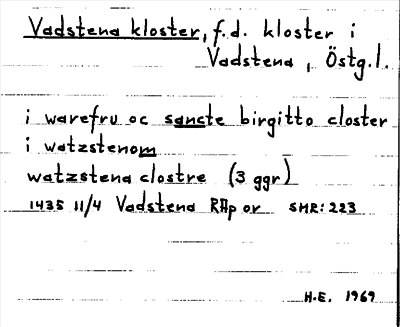 Vadstena kloster, f.d. kloster i
Vadstena, Östg.l.
i warefru oc sancte birgitto closter
i watzstenom
watzstena clostre (3 ggr)
1435 11/4 Vadstena RAp or SMR: 223
H.E. 1969